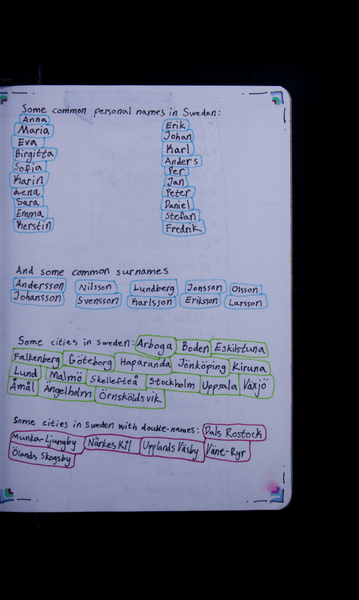 Some common personal names in Sweden:
Anna
Maria
Eva
Birgitta
Sofia
Karin
Lena
Sara
Emma
Kerstin
Erik
Johan
Karl
Anders
Per
Jan
Peter
Daniel
Stefan
Fredrik
And some common surnames
Andersson Nilsson Lundberg Jonsson Olsson
Johansson Svensson Karlsson Eriksson Larsson
Some cities in sweden: Arboga Boden Eskilstuna
Falkenberg Göteborg Haparanda Jönköping Kiruna
Lund Malmö Skellefteå Stockholm Uppsala Växjö
Åmål Ängelholm Örnsköldsvik
Some cities in Sweden with double-names: Dals Rostock
Munka-Ljungby Närkes Kil Upplands Väsby Väne-Ryr
Ölands Skogsby